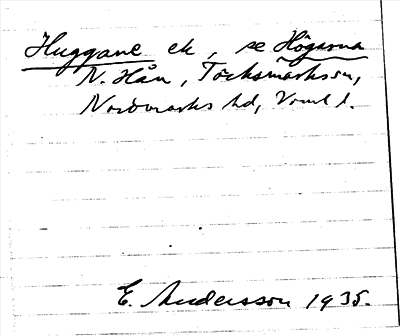 Huggane ek, se Högarna
N. Hån, Töcksmarks sn,
Nordmarks hd, Vrml l.
E. Andersson 1935.